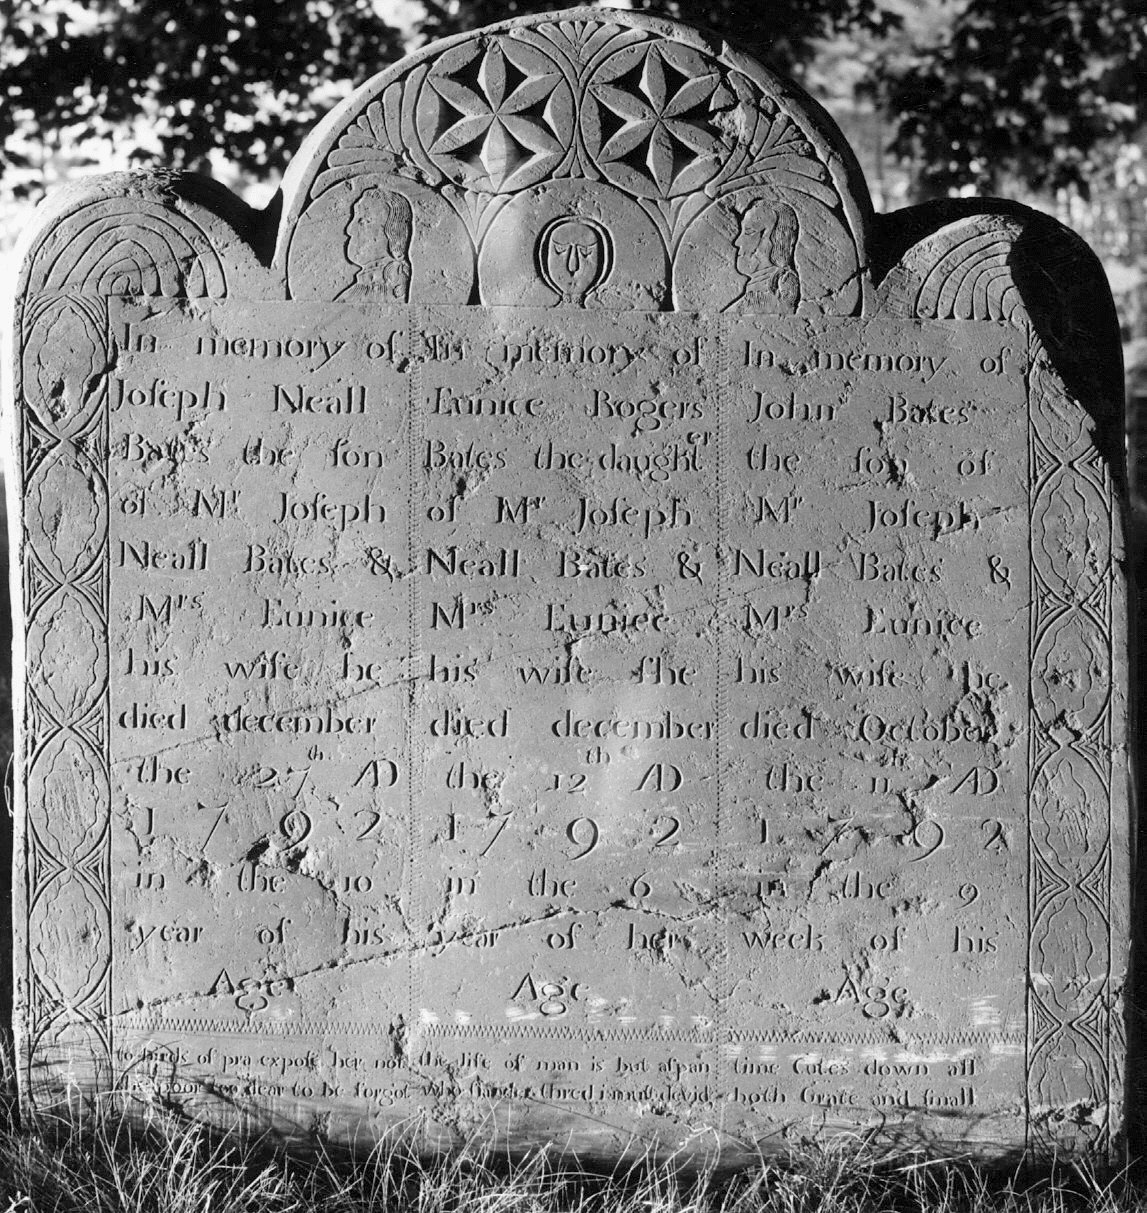 In memory of
Joſeph Neall
Bates the ſon
of Mr Joſeph
Neall Bates &
Mrs Eunice
his wife he
died december
the 27th AD
1792
in the 10
year of his
Age
to birds of pra expoſe her not
poor too dear to be forgot
In memory of
Eunice Rogers
Bates the daughter
of Mr Joſeph
Neall Bates &
Mrs Eunice
his wife ſhe
died december
the 12th AD
1792
in the 6
year of her
Age
the life of man is but aſpan
who ſlander thred is muſt devid
In memory of
John Bates
the ſon of
Mr Joſeph
Neall Bates &
Mrs Eunice
his wife he
died October
the 11th AD
1792
in the 9
week of his
Age
time Cutes down all
both Grate and ſmall